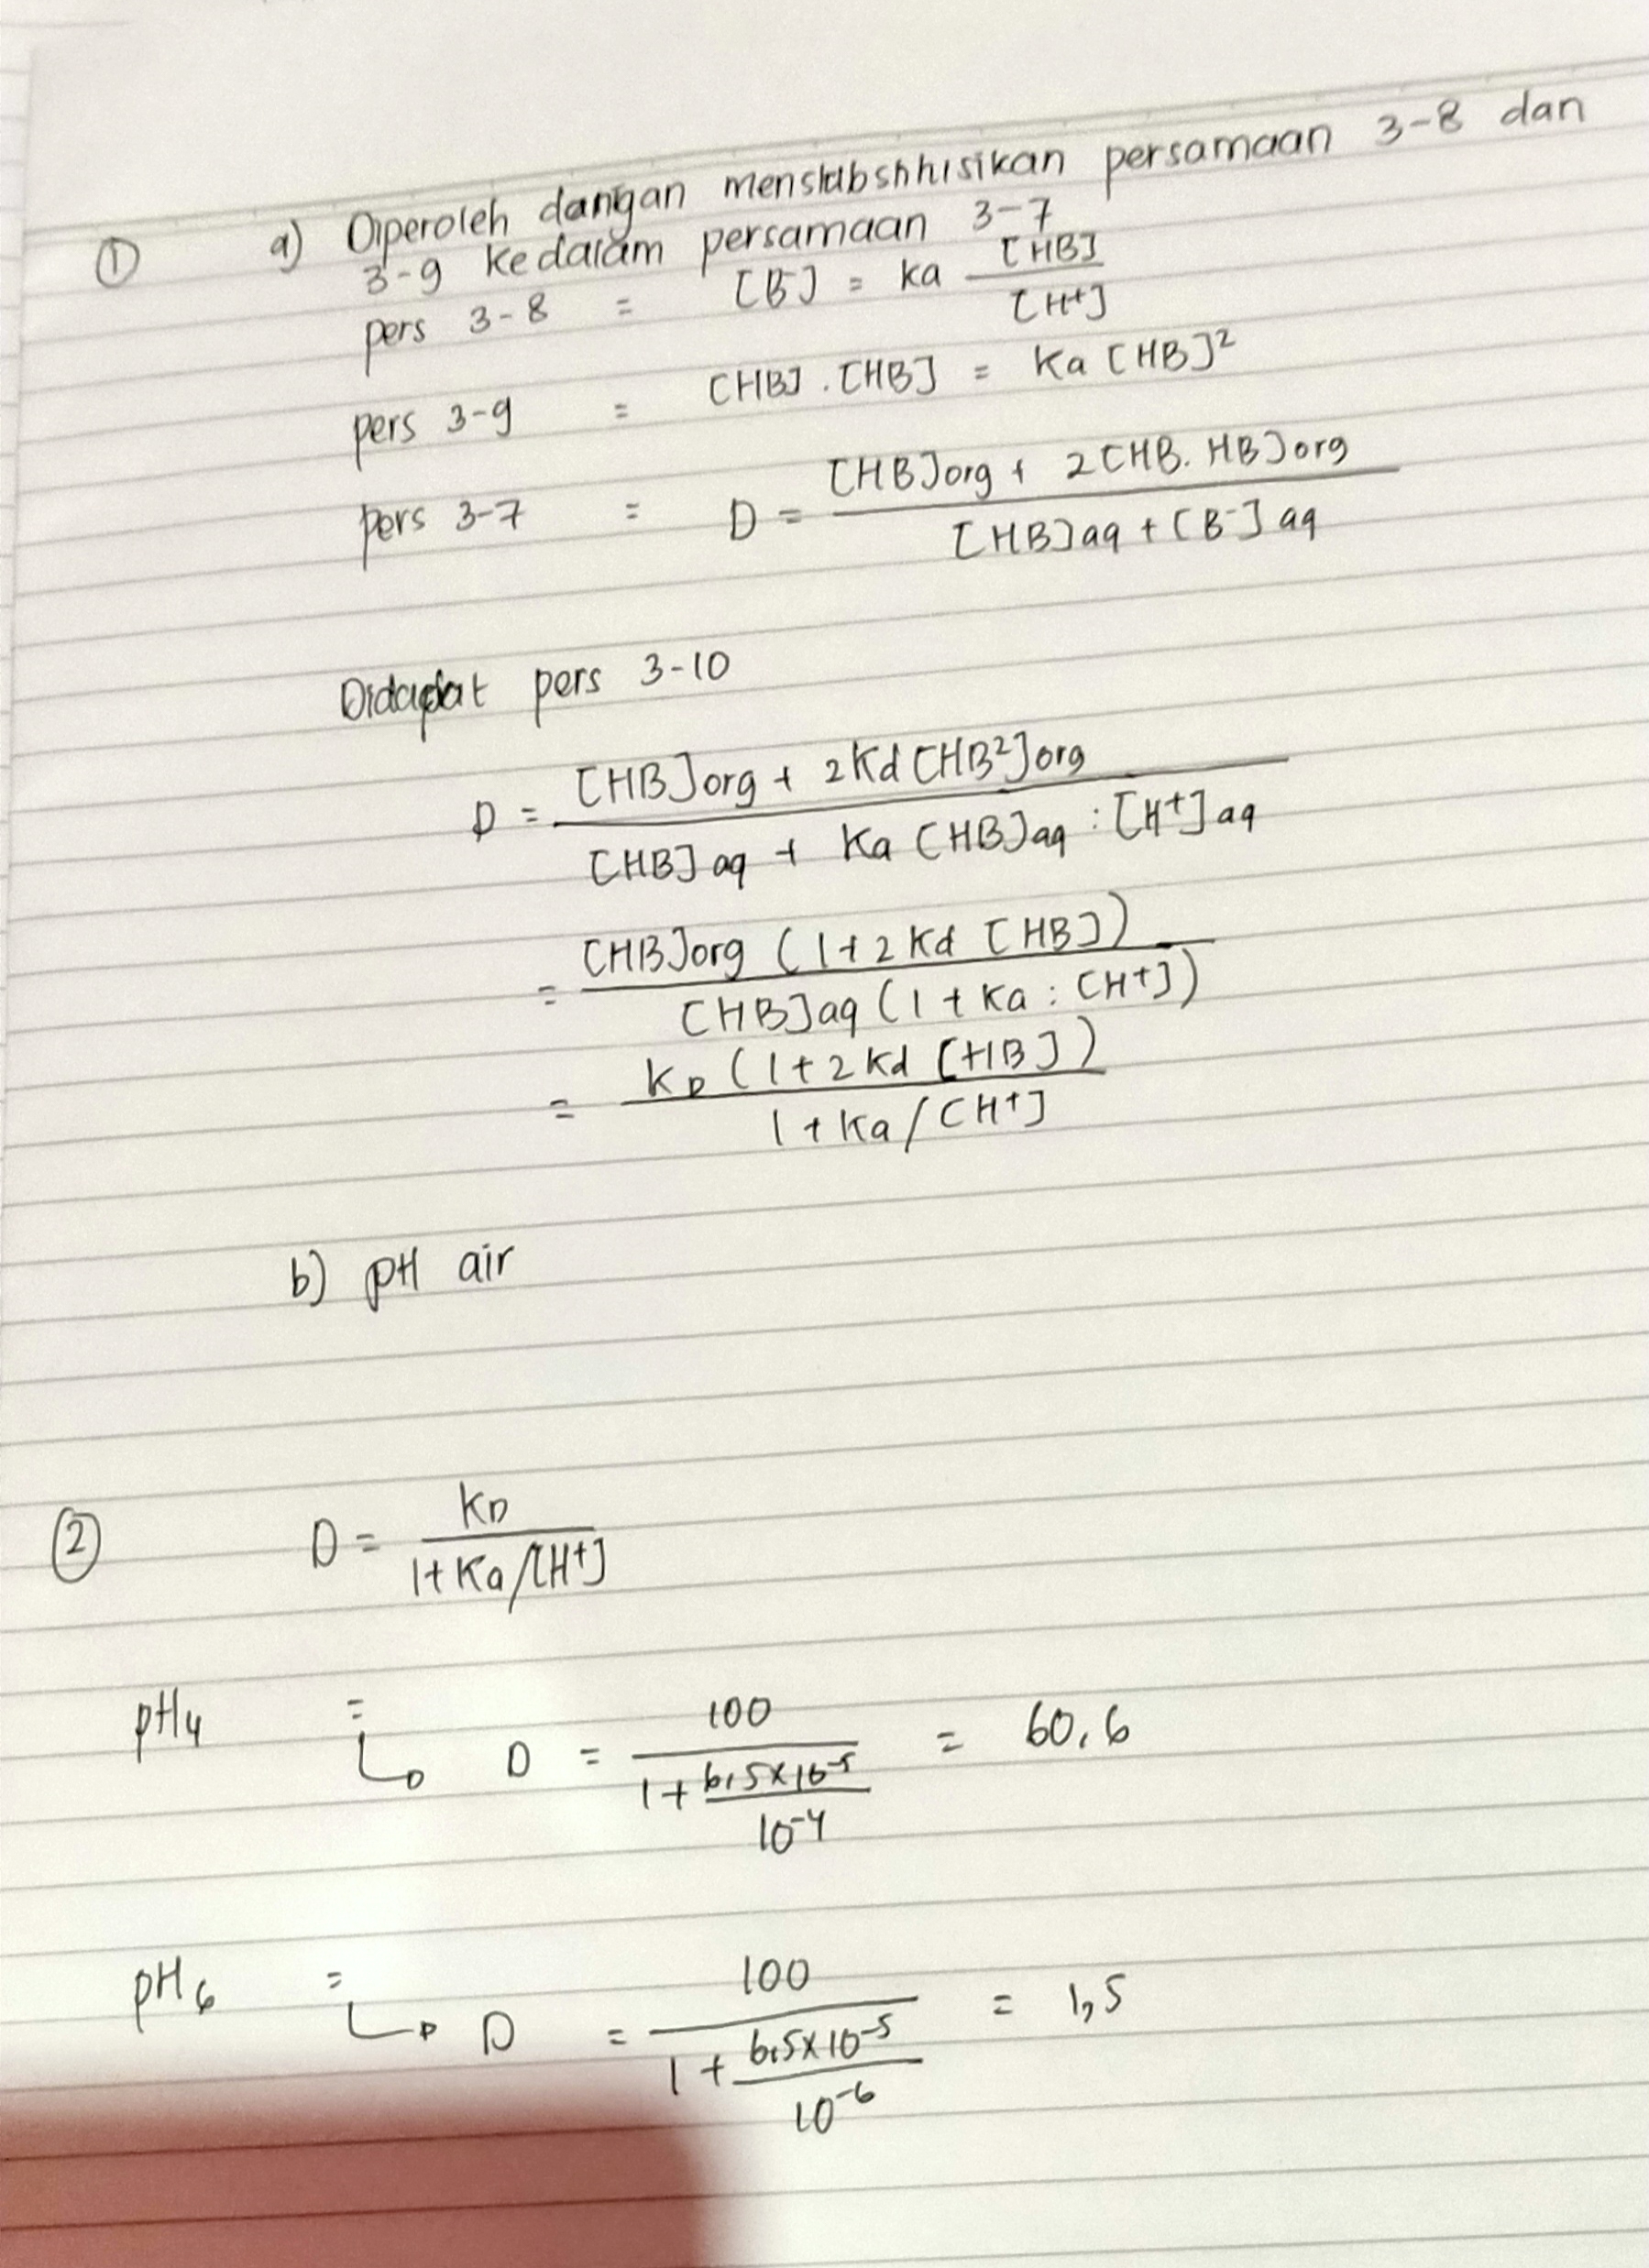 ① a) Diperoleh dangan menslubshhisikan persamaan 3-8 dan
3-9 kedalam persamaan 3-7
pers 3-8 = [B] = ka [HB] / [H+]
pers 3-9 = [HB] . [HB] = Ka [HB]²
pers 3-7 = D = [HB]org + 2[HB. HB]org / [HB]aq + [B⁻]aq
Didapat pers 3-10
D = [HB]org + 2Kd [HB²]org / [HB]aq + Ka [HB]aq : [H+]aq
= [HB]org (1+2 Kd [HB]) / [HB]aq (1 + Ka : [H+])
= KD (1+2 Kd [HB]) / 1 + Ka/[H+]
b) pH air
② D = KD / 1+Ka/[H+]
pH4 = ↳ D = 100 / 1 + 6,5x10⁻⁵ / 10⁻⁴ = 60,6
pH6 = ↳ D = 100 / 1 + 6,5x10⁻⁵ / 10⁻⁶ = 1,5